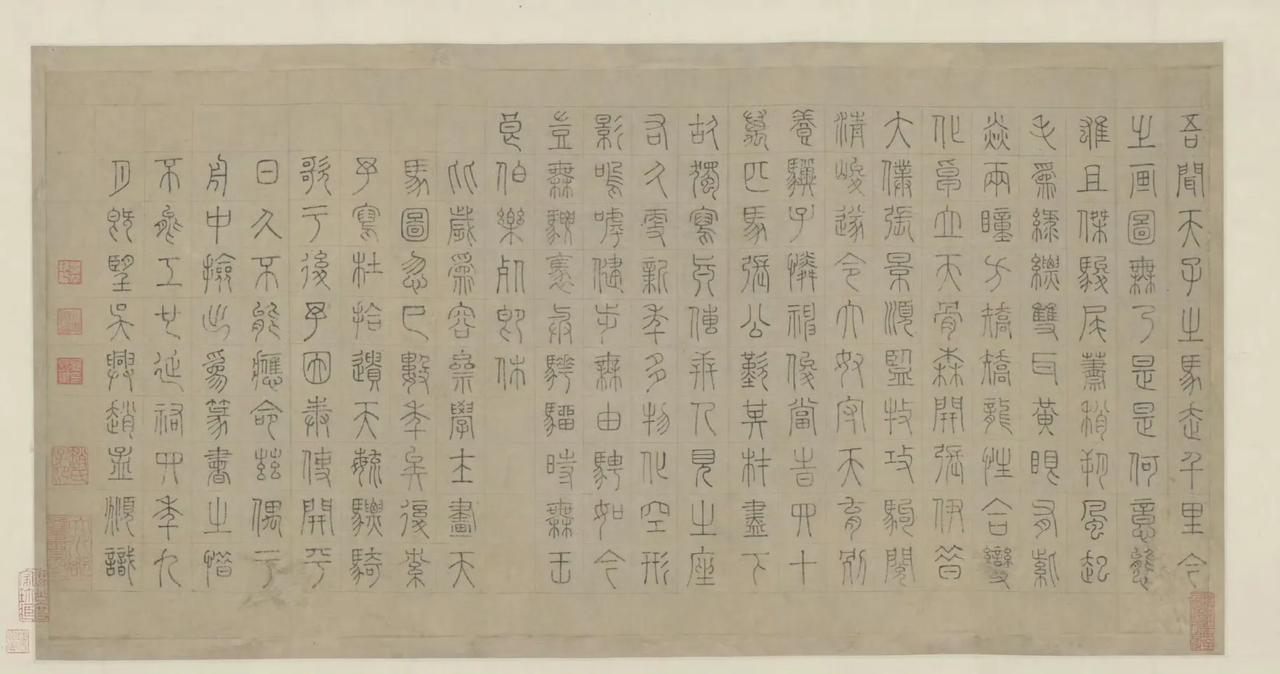 吾聞天子之馬走千里今
之画圖無乃是是何意態
雄且傑駿尾蕭梢朔風起
毛為綠縹雙耳黃眼有紫
焱兩瞳方矯矯龍性合變
化卓立天骨森開張伊昔
大僕張景順監牧攻駒閱
清峻遂令大奴守天育別
養驥子憐神俊當時四十
萬匹馬張公歎其材盡下
故獨寫真傳世人見之座
右久更新年多物化空形
影嗚呼健步無由騁如今
豈無騕褭與驊騮時無王
良伯樂死即休
比歲為容學士畫天
馬圖忽已數年矣復索
予寫杜拾遺天育驃騎
歌于後予因奉使開平
日久不能應命茲偶于
舟中撿出為篆書之惜
不能工也延祐四年九
月既望吳興趙孟頫識